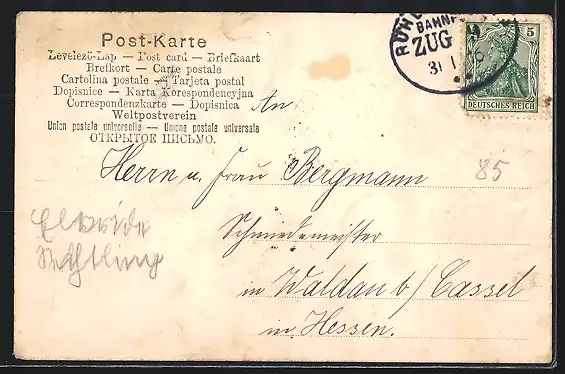 Post-Karte
Levelező-Lap — Post card — Briefkaart
Brefkort — Carte postale
Cartolina postale — Tarjeta postal
Dopisnice — Karta Korespondencyjna
Correspondenzkarte — Dopisnica
Weltpostverein
Union postale universelle — Unione postale universale
ОТКРЫТОЕ ПИСЬМО.
BAHNP
ZUG
31 1 6
5
DEUTSCHES REICH
An
Herrn u. Frau Bergmann
85
Schmiedemeister
in Waldau b/ Cassel
in Hessen.